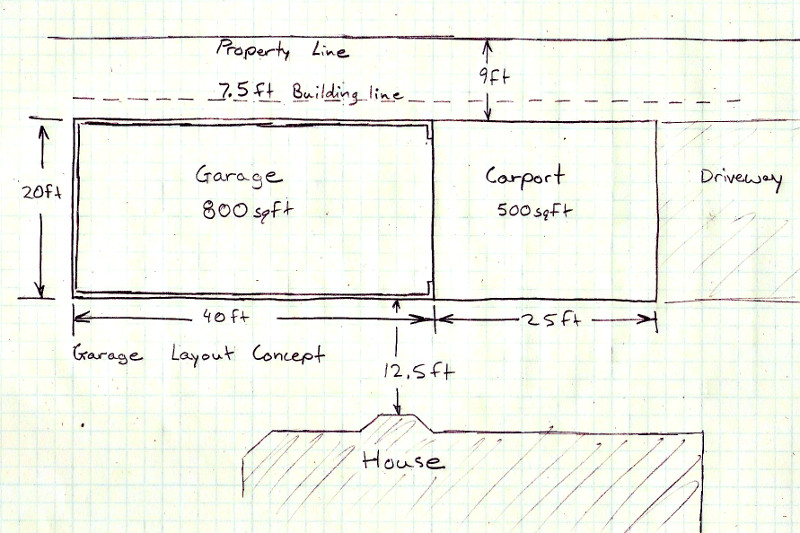 Property Line
9ft
7.5ft Building line
Garage
800 sqft
Carport
500 sqft
Driveway
20ft
40ft
25ft
Garage Layout Concept
12.5ft
House